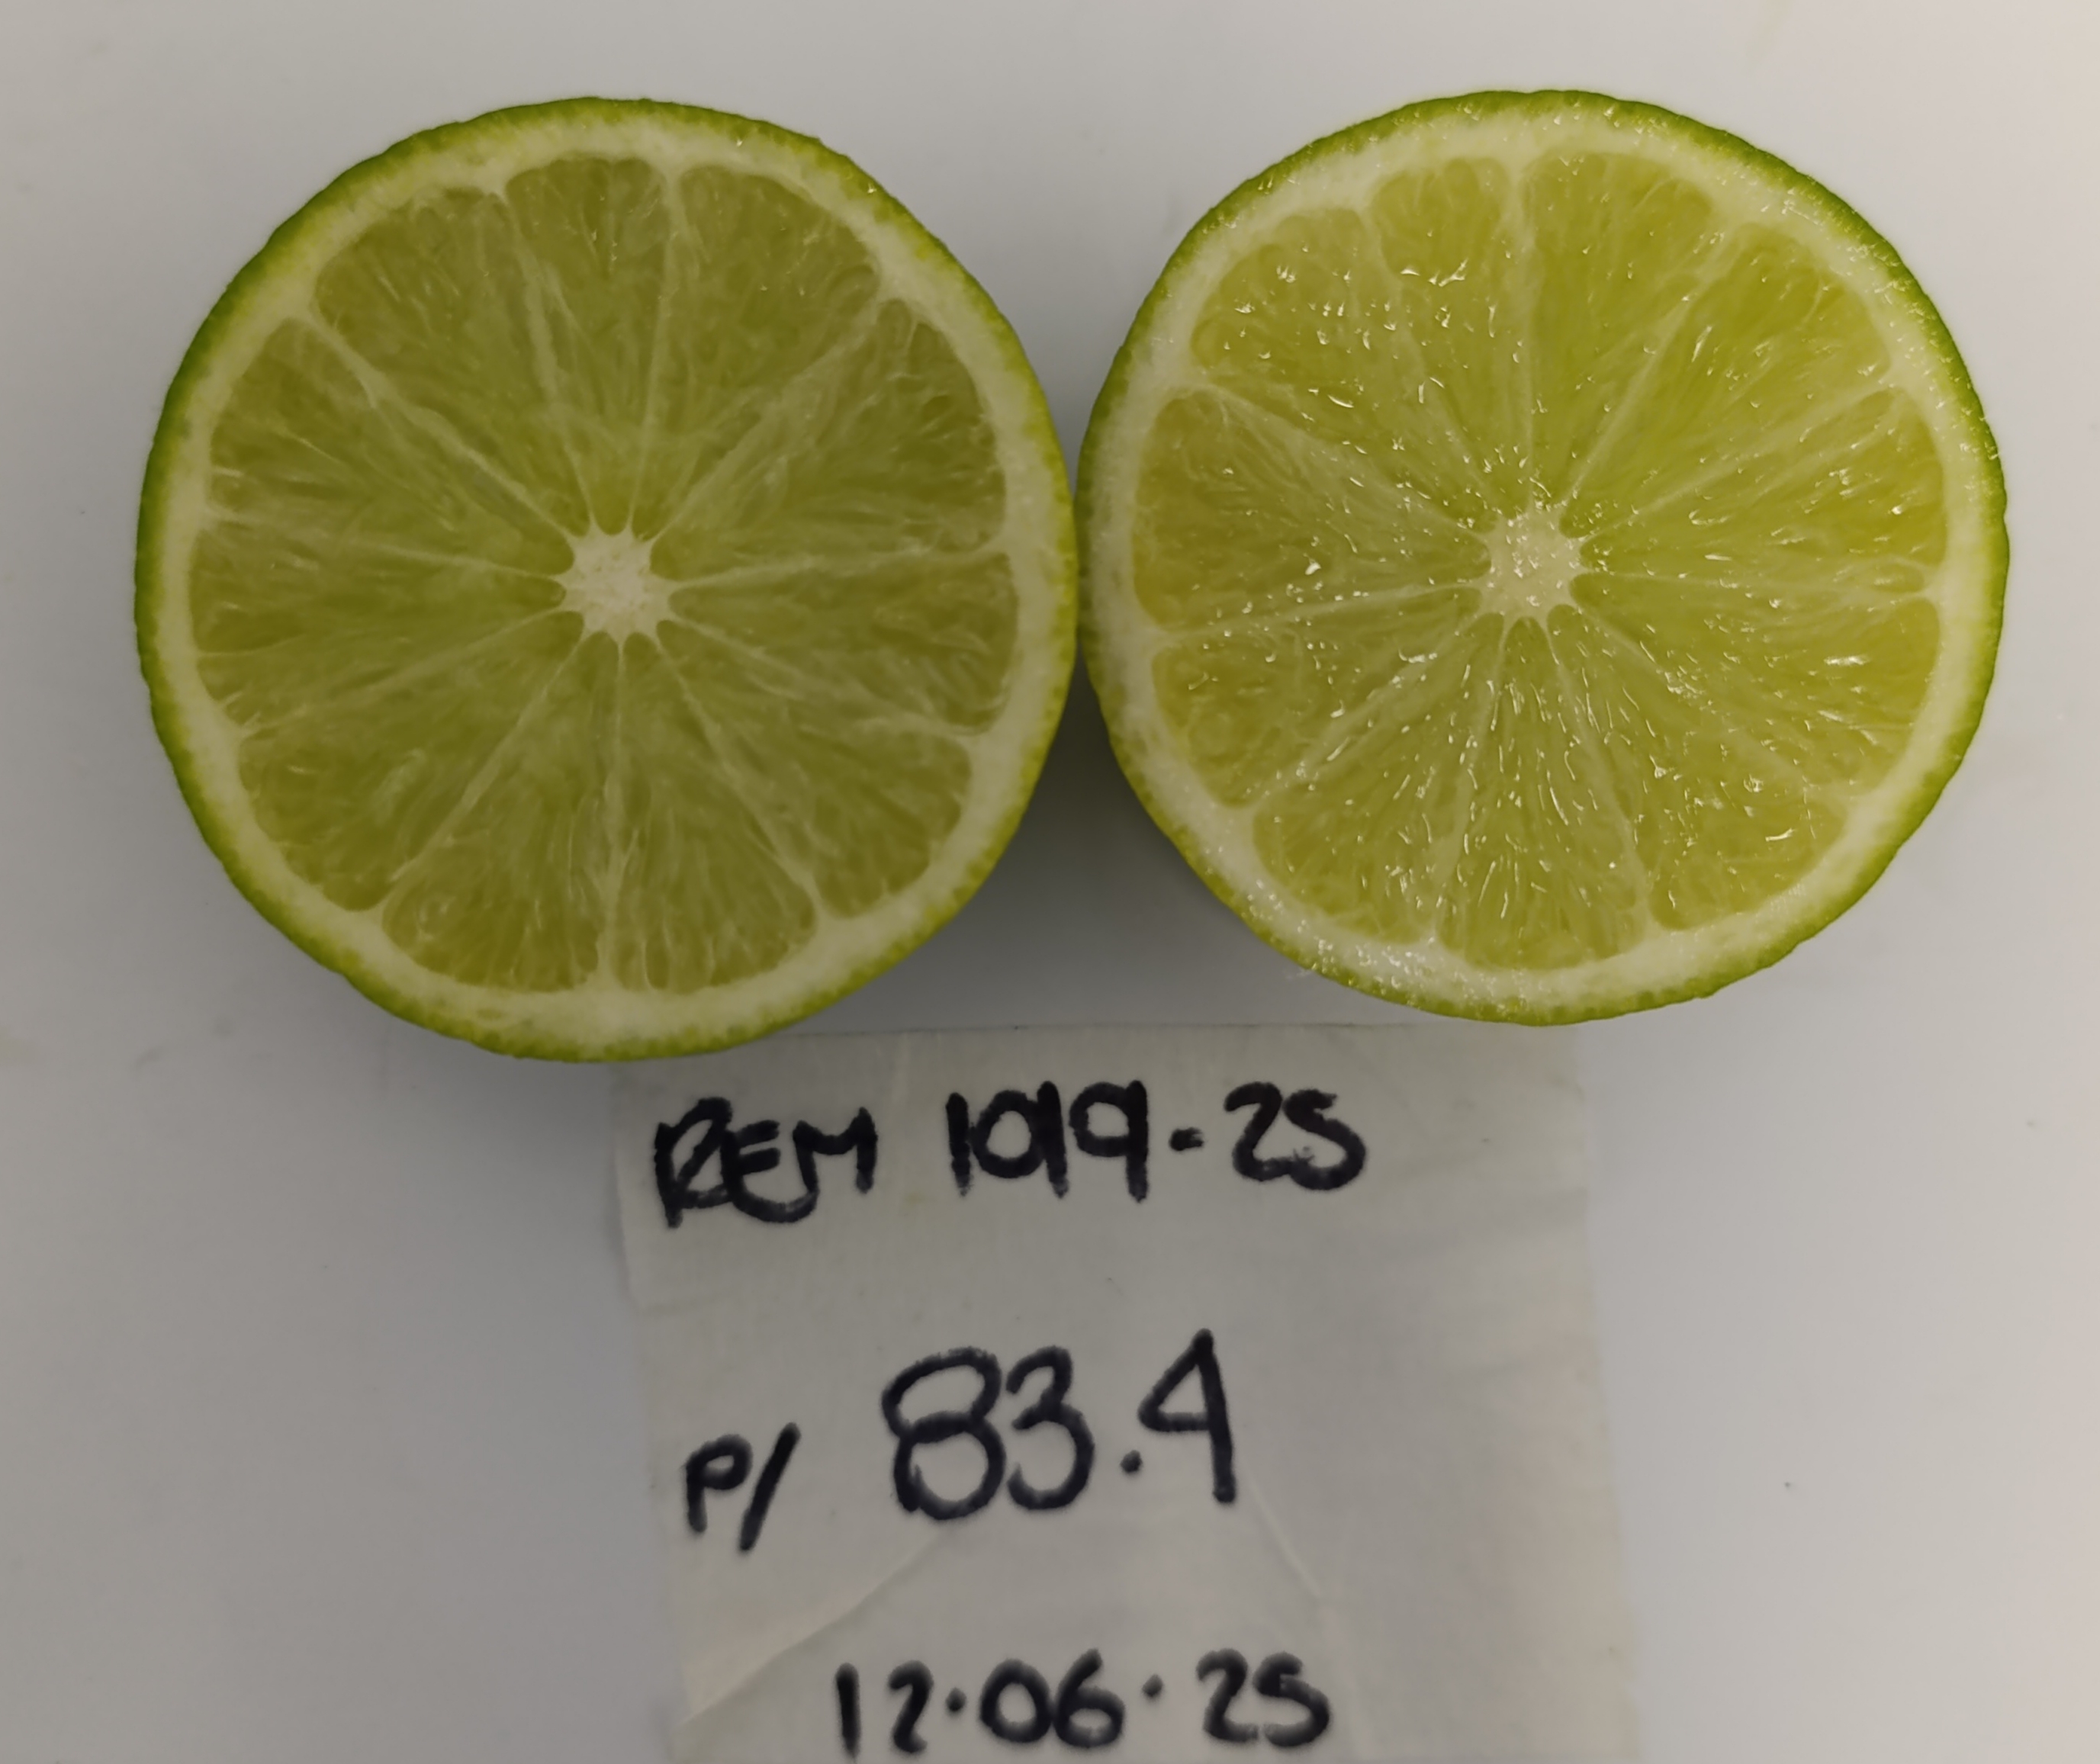 REM 1019-25
P/ 83.4
12.06.25